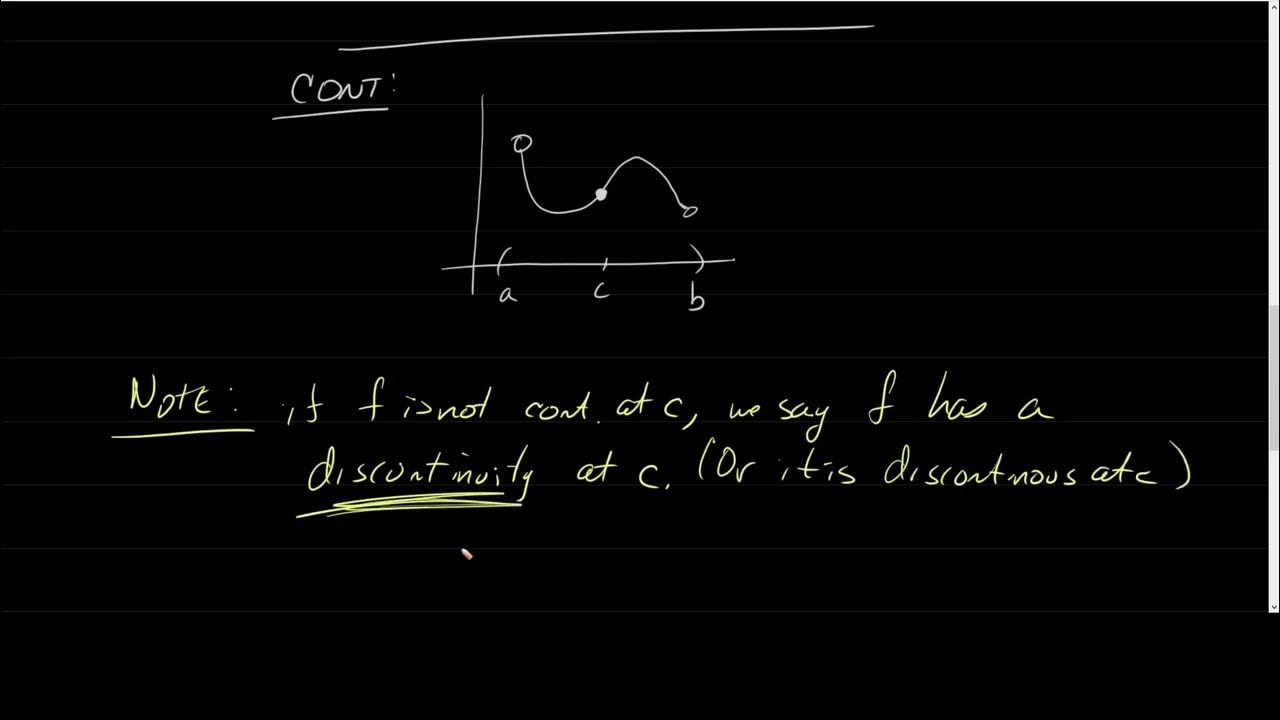 CONT:
a c b
NOTE: if f is not cont. at c, we say f has a
discontinuity at c. (Or it is discontnous at c)